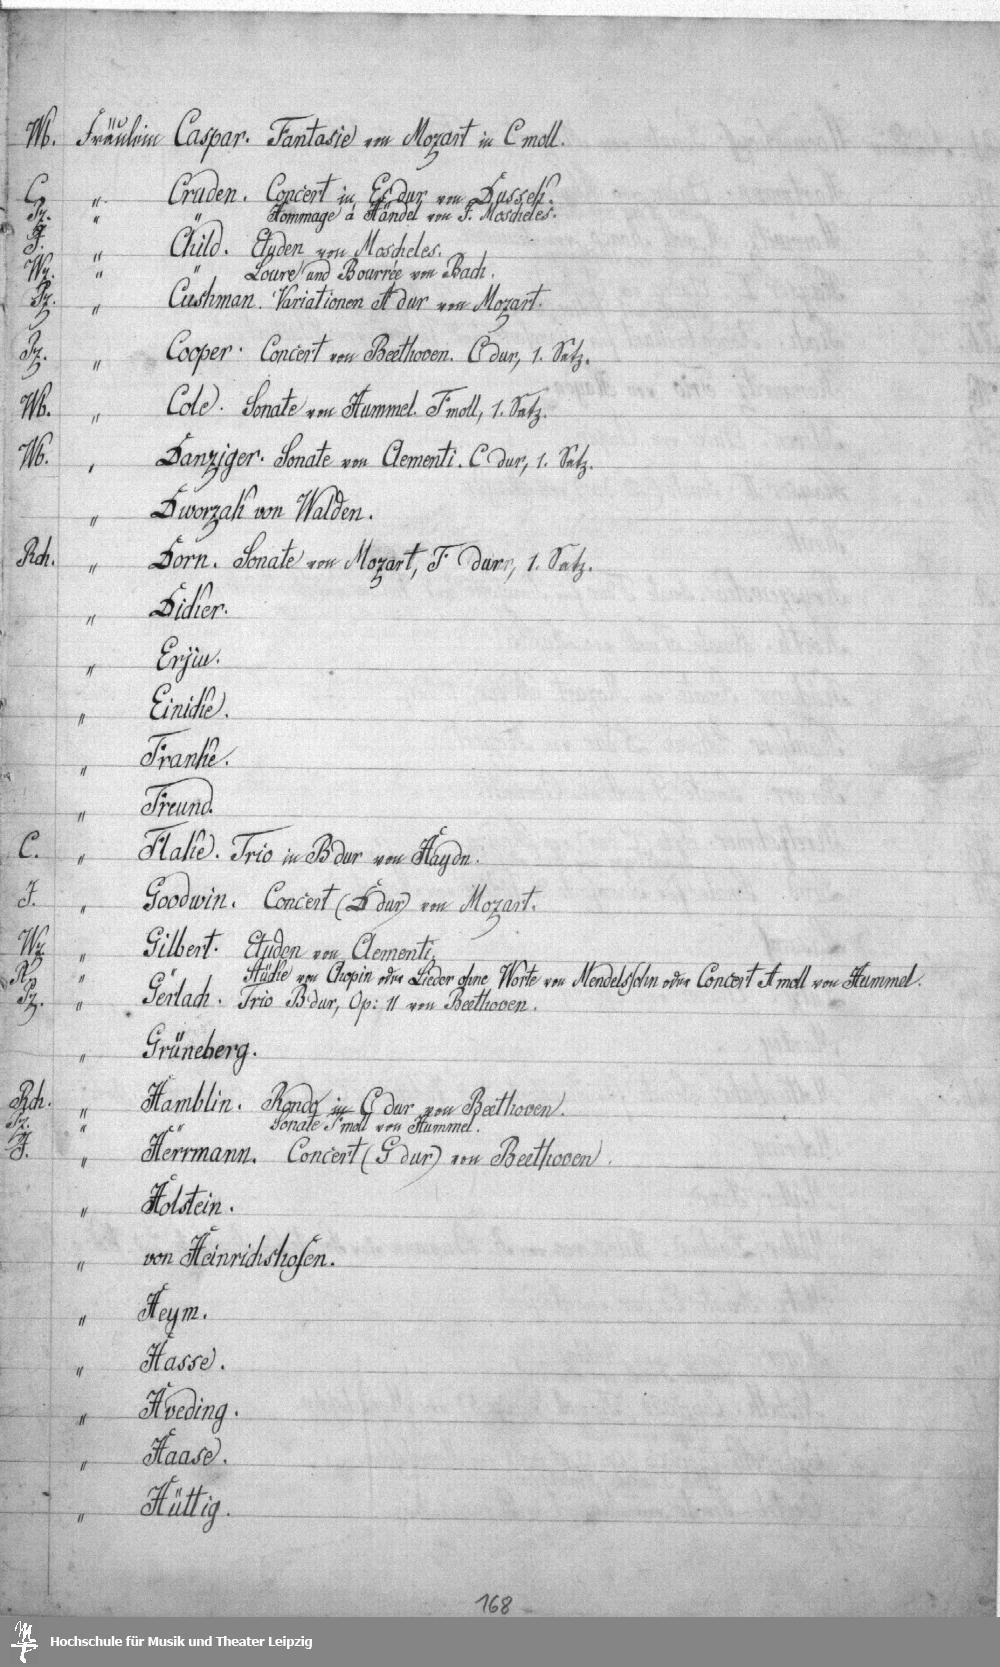 Wb. Fräulein Caspar. Fantasie von Mozart in C moll.
C. " Cruden. Concert in Es dur von Dussek.
Pz. " " Hommage à Händel von J. Moscheles.
J. " Child. Etuden von Moscheles.
Wz. " " Loure und Bourrée von Bach.
Pz. " Cushman. Variationen A dur von Mozart.
Pz. " Cooper. Concert von Beethoven. C dur, 1. Satz.
Wb. " Cole. Sonate von Hummel. F moll, 1. Satz.
Wb. " Danziger. Sonate von Clementi. C dur, 1. Satz.
" Dworzak von Walden.
Rch. " Dorn. Sonate von Mozart, F dur, 1. Satz.
" Dicker.
"
" Einicke.
" Franke.
" Freund.
C. " Flake. Trio in B dur von Haydn.
J. " Goodwin. Concert (D dur) von Mozart.
Wz. " Gilbert. Etuden von Clementi.
R. " " Stücke von Chopin oder Lieder ohne Worte von Mendelssohn oder Concert A moll von Hummel.
Pz. " Gerlach. Trio B dur, Op: 11 von Beethoven.
" Grüneberg.
Rch. " Hamblin. Rondo in C dur von Beethoven.
Pz. " " Sonate F moll von Hummel.
J. " Herrmann. Concert (G dur) von Beethoven.
" Holstein.
" von Heinrichshofen.
" Heym.
" Hasse.
" Hveding.
" Haase.
" Hüttig.
168
Hochschule für Musik und Theater Leipzig